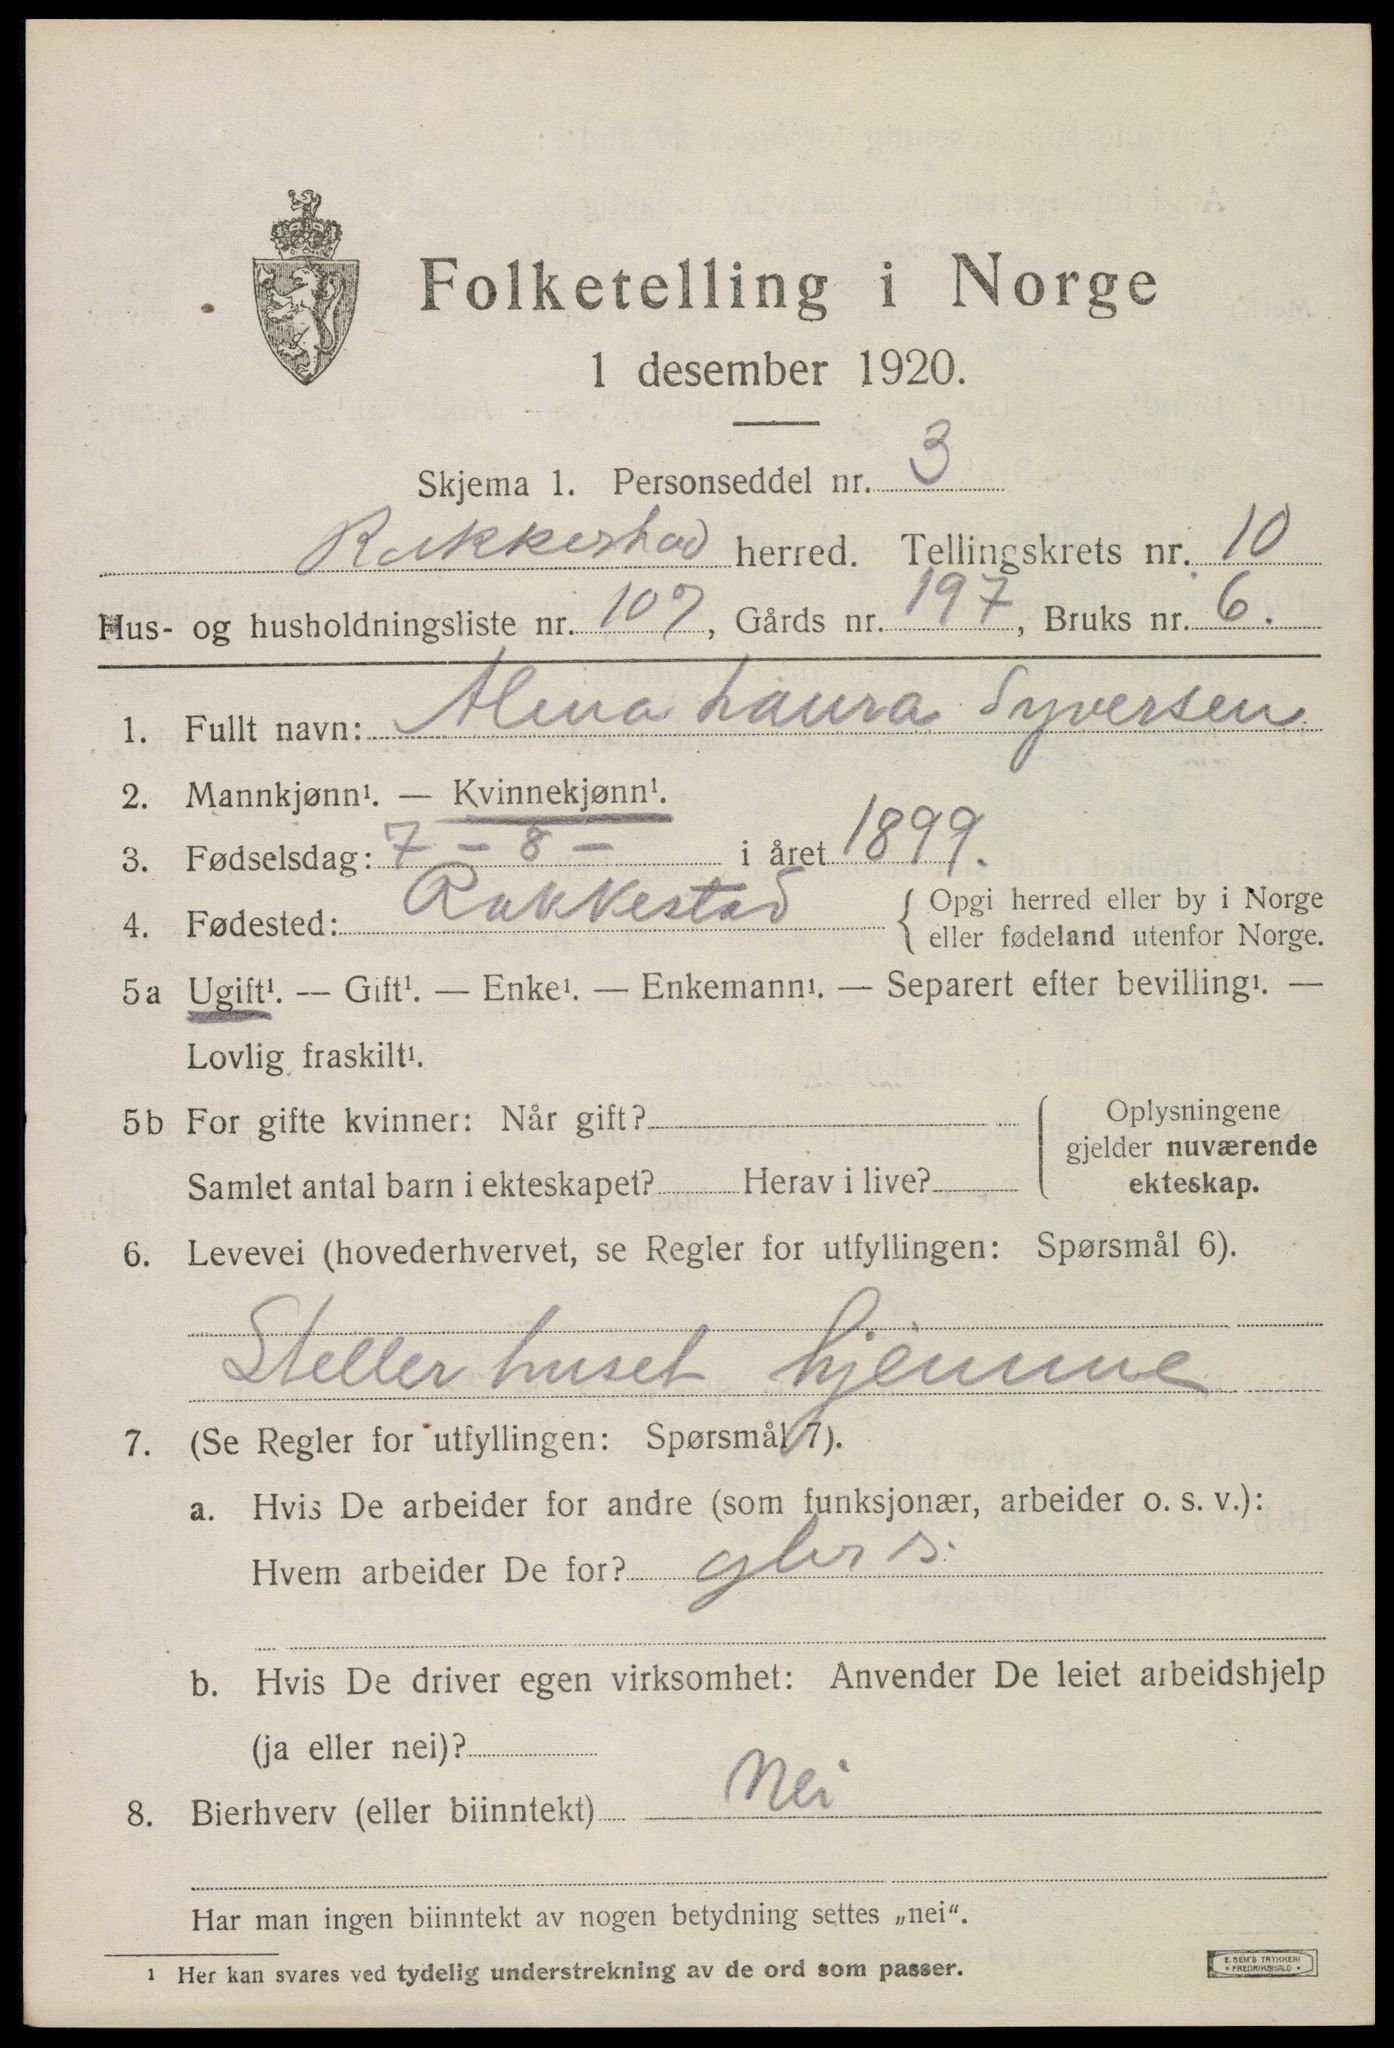 Folketelling i Norge
1 desember 1920.
Skjema 1. Personseddel nr. 3
Rakkestad herred. Tellingskrets nr. 10
Hus- og husholdningsliste nr. 107, Gårds nr. 197, Bruks nr. 6.
1. Fullt navn: Alma Laura Syversen
2. Mannkjønn¹. — Kvinnekjønn¹.
3. Fødselsdag: 7 - 8 - i året 1899.
4. Fødested: Rakkestad { Opgi herred eller by i Norge
eller fødeland utenfor Norge.
5a Ugift¹. — Gift¹. — Enke¹. — Enkemann¹. — Separert efter bevilling¹. —
Lovlig fraskilt¹.
5b For gifte kvinner: Når gift?
Samlet antal barn i ekteskapet? Herav i live?
Oplysningene
gjelder nuværende
ekteskap.
6. Levevei (hovederhvervet, se Regler for utfyllingen: Spørsmål 6).
Steller huset hjemme
7. (Se Regler for utfyllingen: Spørsmål 7).
a. Hvis De arbeider for andre (som funksjonær, arbeider o. s. v.):
Hvem arbeider De for?
b. Hvis De driver egen virksomhet: Anvender De leiet arbeidshjelp
(ja eller nei)?
8. Bierhverv (eller biinntekt) Nei
Har man ingen biinntekt av nogen betydning settes „nei“.
¹ Her kan svares ved tydelig understrekning av de ord som passer.
E. SEM'S TRYKKERI
FREDRIKSHALD